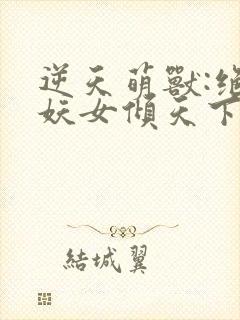 逆天萌獸:絕
妖女傾天下
結城翼